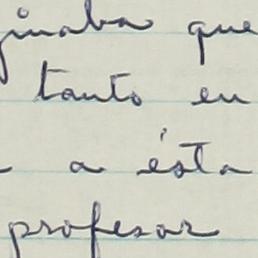 ginaba que
tanto en
a ésta
profesor